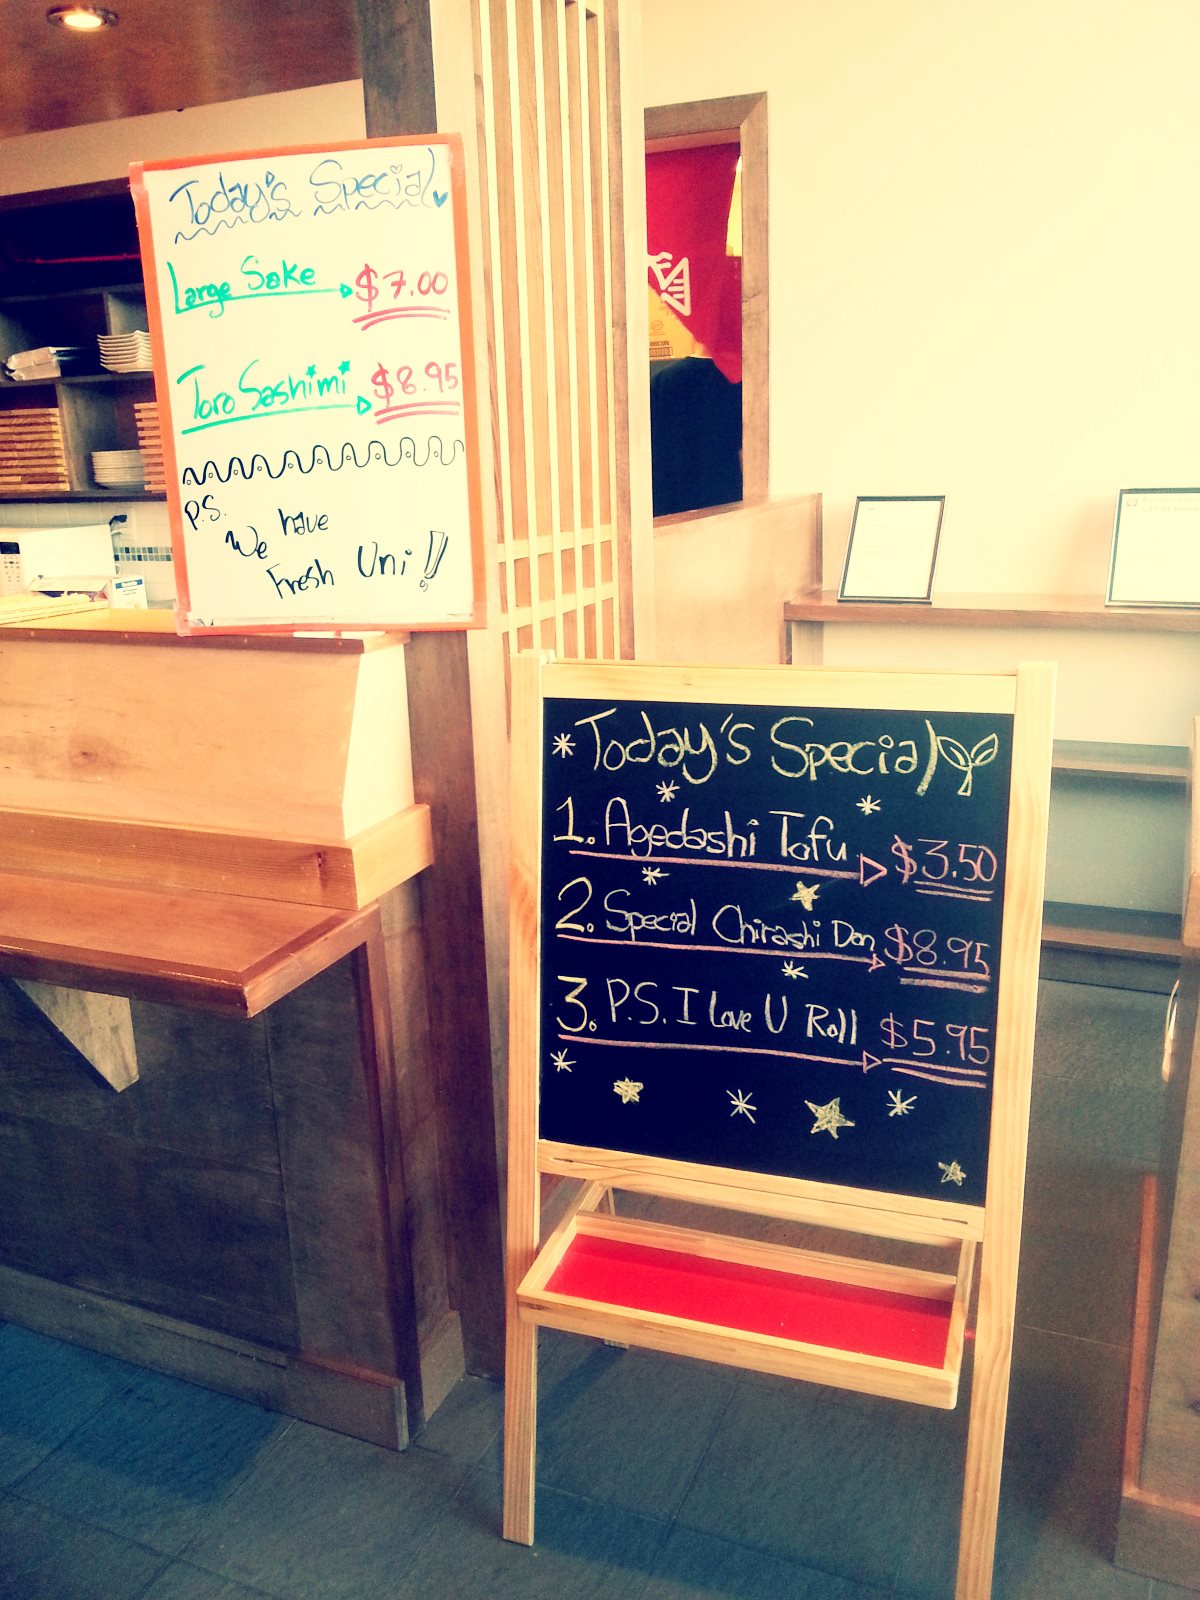 Today's Special
Large Sake $7.00
Toro Sashimi $8.95
P.S.
We have
Fresh Uni!!
Today's Special
1. Agedashi Tofu $3.50
2. Special Chirashi Don $8.95
3. P.S. I Love U Roll $5.95